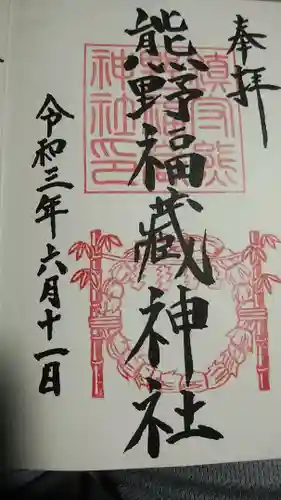 奉拝
熊野福藏神社
令和三年六月十一日